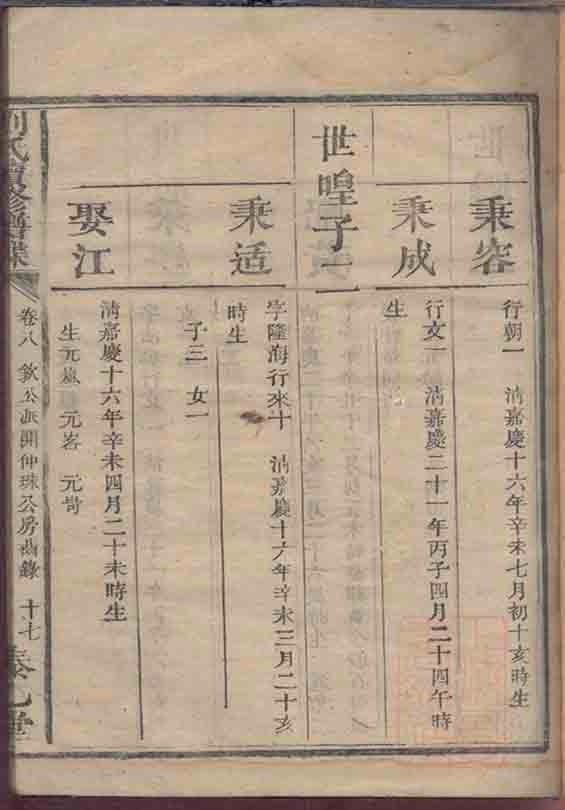 秉容
行朝一 清嘉慶十六年辛未七月初十亥時生
秉成
行文一 清嘉慶二十一年丙子四月二十四午時
生
世喤子二
秉适
字隆海行來十 清嘉慶十六年辛未三月二十亥
時生
子三 女一
娶江
清嘉慶十六年辛未四月二十未時生
生元嵐 元客 元岢
氏續修譜牒
卷八 欽公派開仲珠公房齒錄 十七
堂